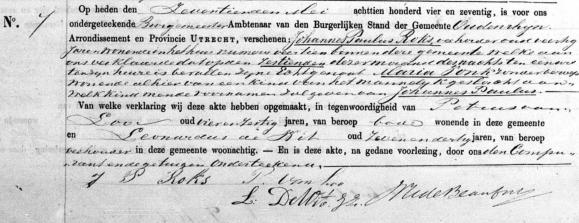 Op heden den Zeventienden Mei achttien honderd vier en zeventig, is voor ons
N°. 7 ondergeteekende Burgemeester Ambtenaar van den Burgerlijken Stand der Gemeente Oudenrijn
Arrondissement en Provincie UTRECHT, verschenen: Johannes Paulus Roks, oud
wonende in het huis nummer binnen deze gemeente welke aan
ons verklaarde dat op den zestienden dezer maand des nachts ten
uur is bevallen zijne Echtgenoot Maria Vonk zonder beroep
wonende alhier van een kind van het mannelijk geslacht aan
welk kind de voornamen zal geven van Johannes Paulus.
Van welke verklaring wij deze akte hebben opgemaakt, in tegenwoordigheid van Petrus van
Loo oud vierenzestig jaren, van beroep bode wonende in deze gemeente
en Leonardus de Wit oud zevenendertig jaren, van beroep
in deze gemeente woonachtig. — En is deze akte, na gedane voorlezing, door ons den Compa-
rant en de getuigen onderteekend.
J P Roks P van Loo
L: DeWit